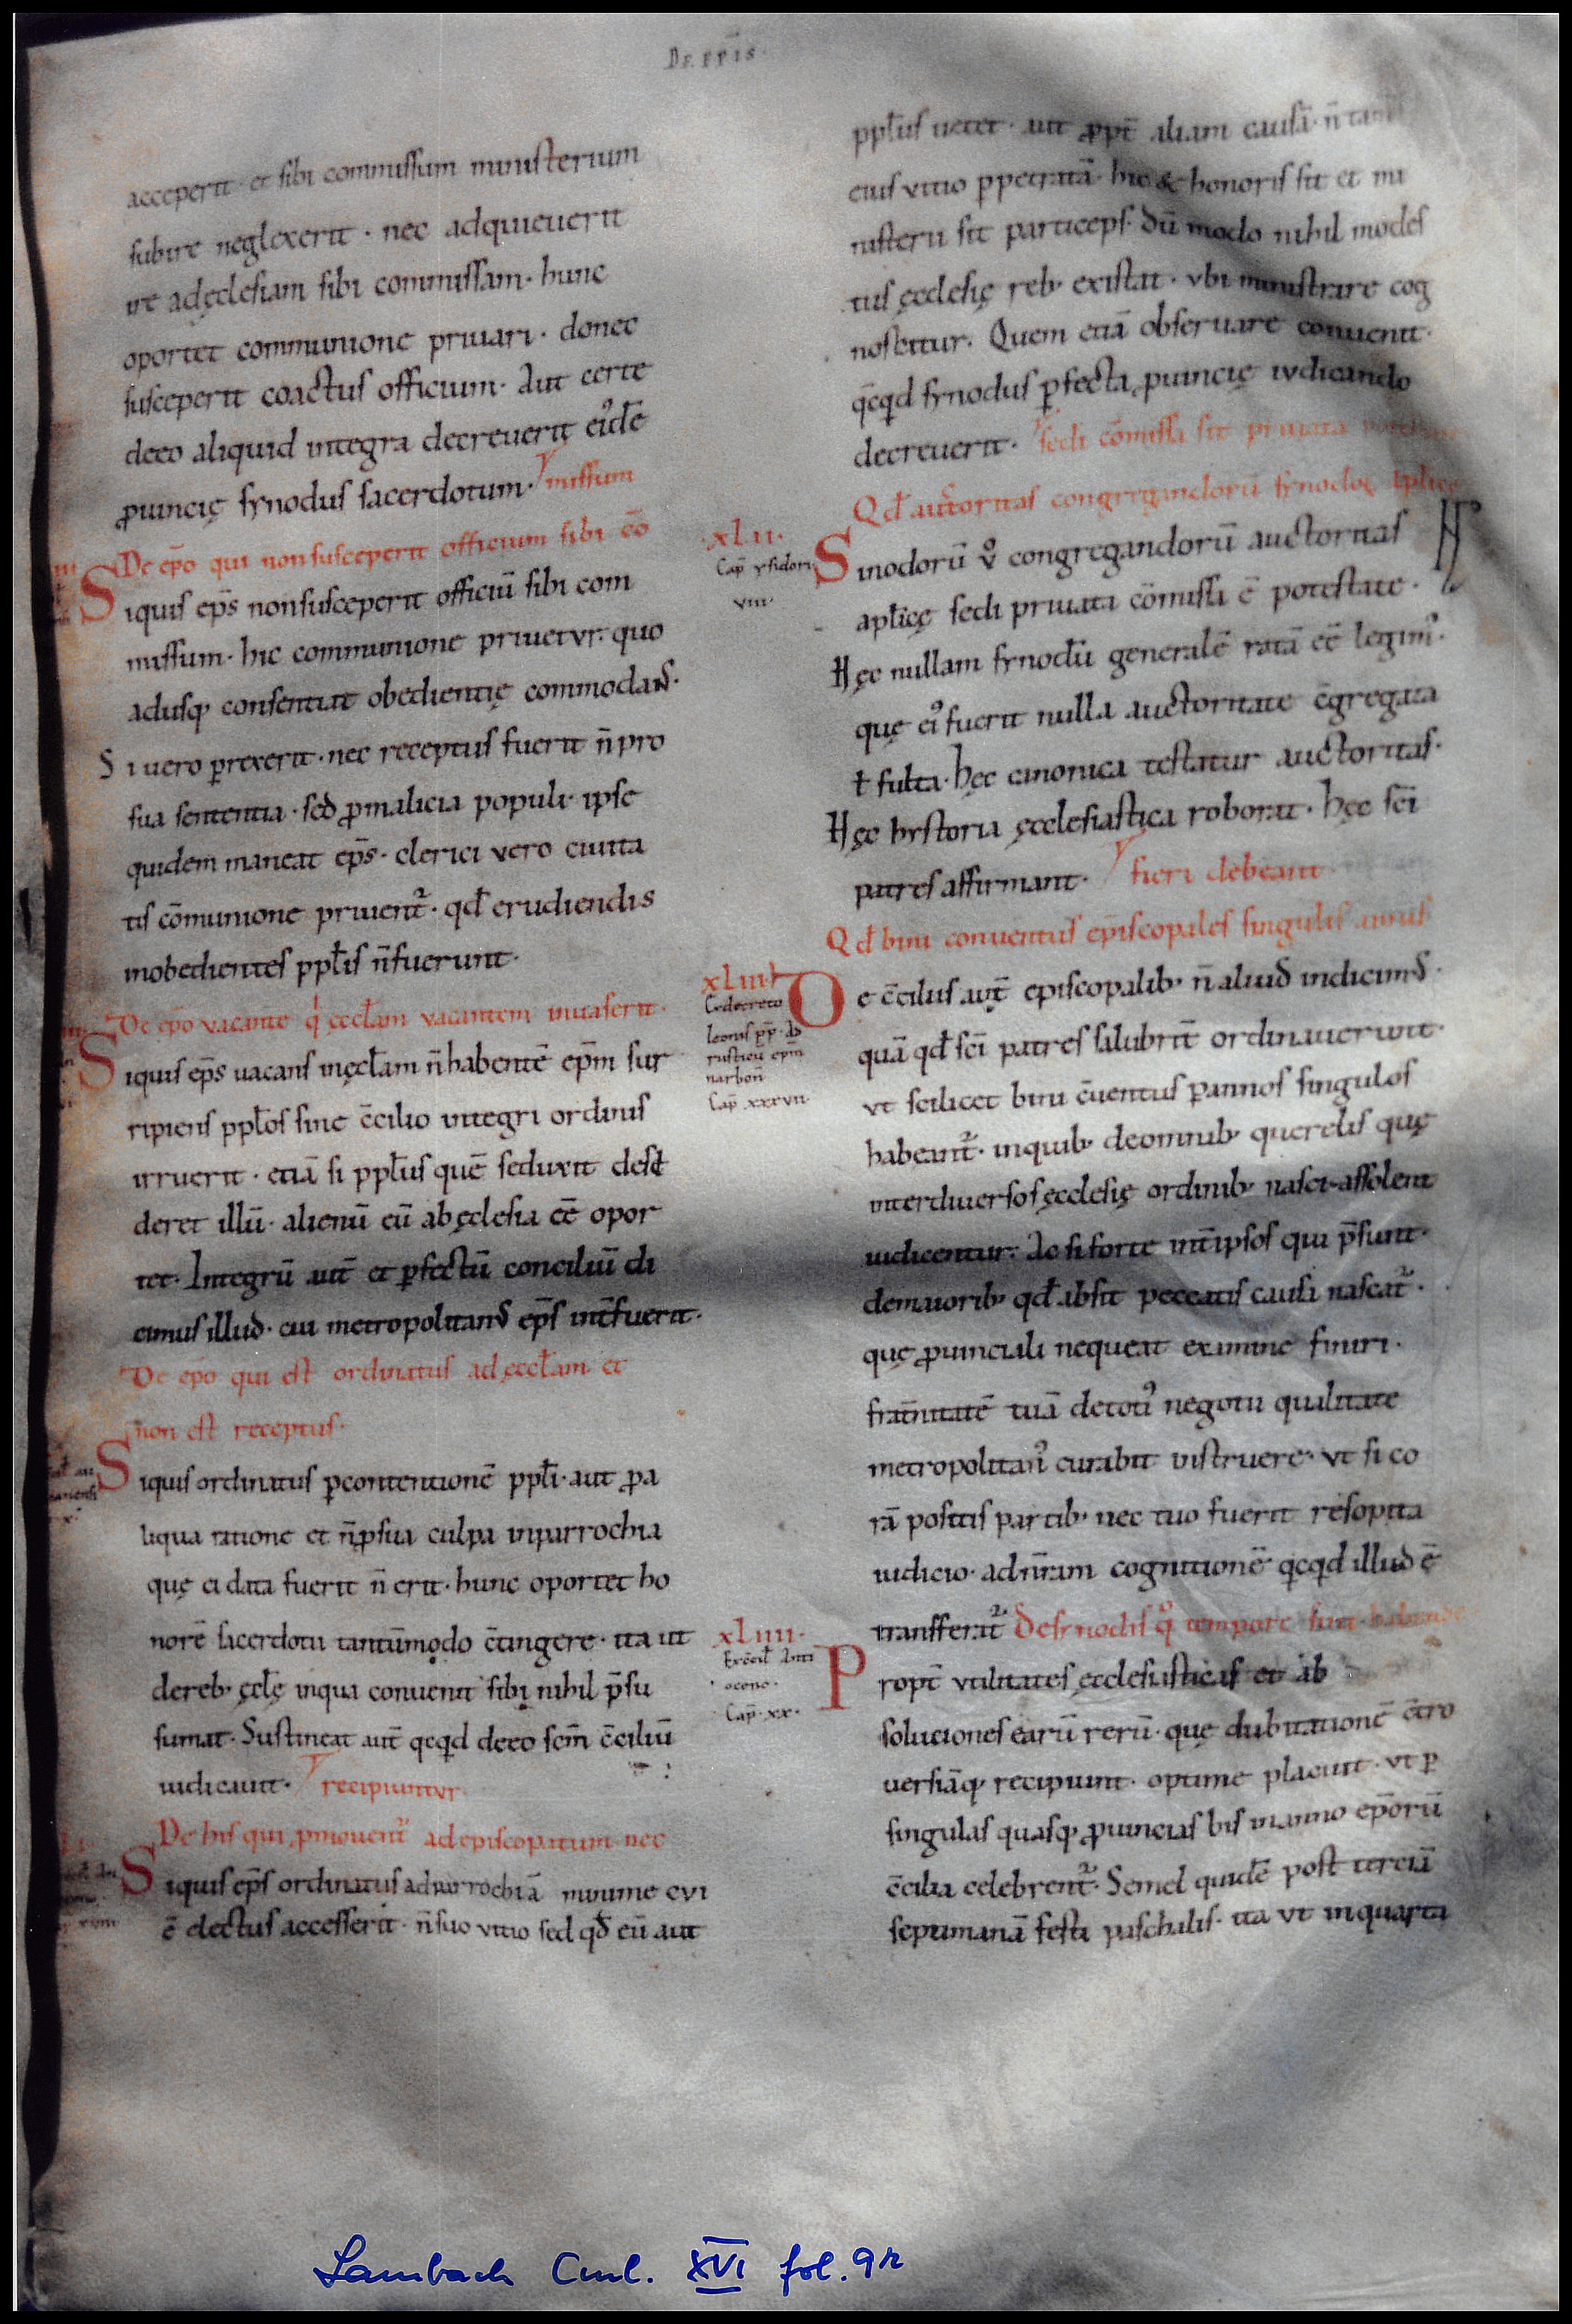 De epīs.
acceperit· et sibi commissum ministerium
subire neglexerit· nec adquieuerit
ire adęclesiam sibi commissam· hunc
oportet communione priuari· donec
susceperit coactus officium· Aut certe
deeo aliquid integra decreuerit eiꝰdē
ꝓuincię synodus sacerdotum· missum
De ep̄o qui nonsusceperit officium sibi cō
Siquis ep̄s nonsusceperit officiū sibi com
missum· hic communione priuetur· quo
adusq; consentiat obedientię commodans·
Si uero ꝑrexerit· nec receptus fuerit n̄ pro
sua sententia· sed ꝓmalicia populi· ipse
quidem maneat ep̄s· clerici vero ciuita
tis cōmunione priuent᷑· qd̄ erudiendis
inobedientes ppl̄is n̄fuerunt·
De ep̄o vacante q̇ ęccl̄am vacantem inuaserit·
Siquis ep̄s uacans inęcl̄am n̄habentē ep̄m sur
ripiens ppl̄os sine c̄cilio integri ordinis
irruerit· etiā si ppl̄us quē seduxit desi
deret illū· alienū eū abęclesia eē opor
tet· Integrū aut̄ et ꝑfectū conciliū di
cimus illud· cui metropolitanꝰ ep̄s int̄fuerit·
De ep̄o qui est ordinatus ad ęccl̄am et
non est receptus·
Siquis ordinatus ꝑcontentionē ppl̄i· aut ꝓ a
liqua ratione et n̄ꝓsua culpa inparrochia
quę ei data fuerit n̄ erit· hunc oportet ho
norē sacerdotii tantūmodo c̄tingere· ita ut
dereb; ęcl̄ę inqua conuenit sibi nihil p̄su
sumat· Sustineat aut̄ qcqd deeo scm̄ c̄ciliū
iudicauit· recipiuntur·
De his qui ꝓmouent᷑ ad episcopatum nec
Siquis ep̄s ordinatus adparrochiā minime cui
ē electus accesserit· n̄suo vitio sed qd̄ eū aut
ppl̄us uetet· aut ꝓpt̄ aliam causā· n̄ tam
eius vitio ꝑpetratā· hic & honoris sit et mi
nisterii sit particeps· dū modo nihil moles
tus ęcclesię reb; existat· vbi ministrare cog
noscitur· Quem etiā obseruare conuenit·
qcqd synodus ꝑfecta ꝓuincię iudicando
decreuerit· sedi cōmissa sit priuata potestate
Qd̄ auctoritas congregandorū synodoꝝ aplicę
xlii·
Cap̄ ysidori
viii·
Sinodorū v̊ congregandorū auctoritas
apl̄icę sedi priuata cōmissa ē potestate·
Hęc nullam synodū generalē ratā eē legimꝰ·
quę eiꝰ fuerit nulla auctoritate c̄gregata
ł fulta· hęc canonica testatur auctoritas·
Hęc hystoria ęcclesiastica roborat· hęc sc̄i
patres affirmant· fieri debeant·
Qd̄ bini conuentus ep̄iscopales singulis annis
xliii
Ex decreto
leonis pp̄· ad
rusticū ep̄m
narbon̄
Cap̄ xxxvii·
De c̄ciliis aut̄ episcopalib; n̄ aliud indicimꝰ·
quā qd̄ sc̄i patres salubrit̄ ordinauerunt·
vt scilicet bini c̄uentus ꝑannos singulos
habeant᷑· inquib; deomnib; querelis quę
interdiuersos ęcclesię ordinib; nasci assolent
iudicentur· Ac si forte int̄ipsos qui p̄sunt·
demaiorib; qd̄ absit peccatis causa nascat᷑·
quę ꝓuinciali nequeat examine finiri·
frat̄nitatē tuā detotiꝰ negotii qualitate
metropolitanꝰ curabit instruere· vt si co
rā positis partib; nec tuo fuerit resopita
iudicio· adnr̄am cognitionē· qcqd illud ē
transferat᷑ De synodis q̊ tempore sint habende
xliiii·
Ex c̄cil̄ Anti
oceno·
Cap̄· xx·
Propt̄ vtilitates ęcclesiasticas et ab
soluciones earū rerū· quę dubitationē c̄tro
uersiāq; recipiunt· optime placuit· vt ꝑ
singulas quasq; ꝓuincias bis inanno ep̄orū
c̄cilia celebrent᷑· Semel quidē post terciā
septimanā festi paschalis· ita vt inquarta
Lambach Cml. XVI fol. 9r